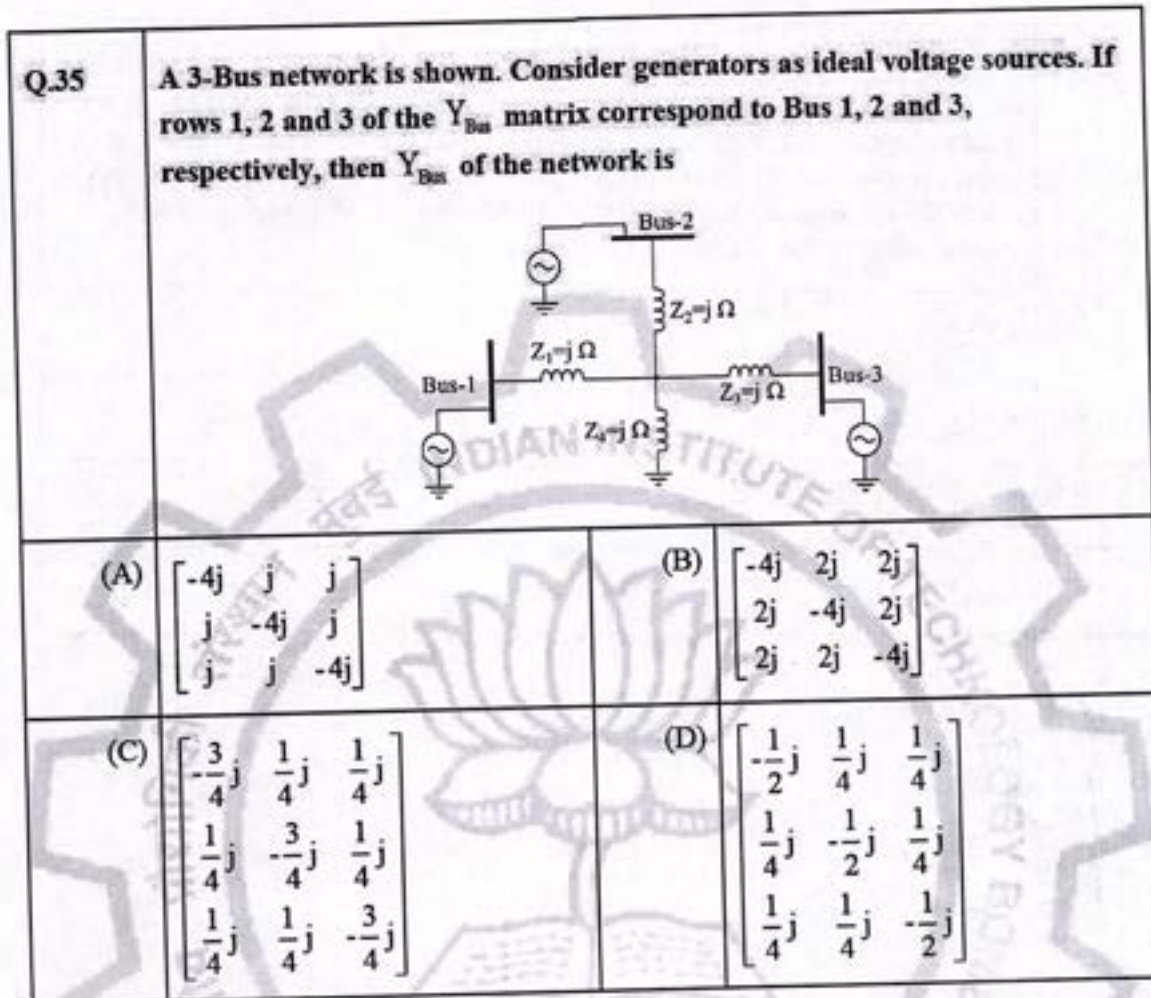 Q.35
A 3-Bus network is shown. Consider generators as ideal voltage sources. If
rows 1, 2 and 3 of the Y_Bus matrix correspond to Bus 1, 2 and 3,
respectively, then Y_Bus of the network is
Bus-2
Z₂=j Ω
Z₁=j Ω
Bus-1
Z₃=j Ω
Bus-3
Z₄=j Ω
INDIAN INSTITUTE OF TECHNOLOGY BO
मुंबई
(A)
-4j j j
j -4j j
j j -4j
(B)
-4j 2j 2j
2j -4j 2j
2j 2j -4j
(C)
-3/4 j 1/4 j 1/4 j
1/4 j -3/4 j 1/4 j
1/4 j 1/4 j -3/4 j
(D)
-1/2 j 1/4 j 1/4 j
1/4 j -1/2 j 1/4 j
1/4 j 1/4 j -1/2 j